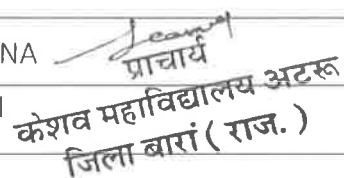 NA
प्राचार्य
केशव महाविद्यालय अटरू
जिला बारां ( राज. )